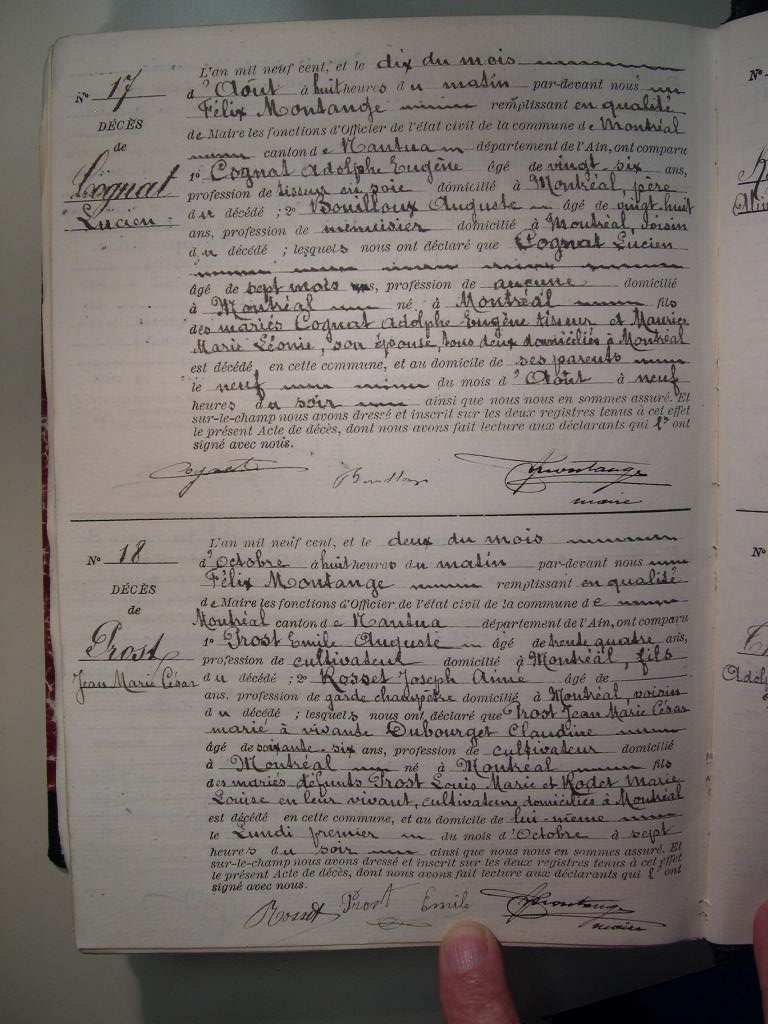 L'an mil neuf cent, et le dix du mois
N° 17
d'Août à huit heures du matin par-devant nous
Félix Montange remplissant en qualité
DÉCÈS
de Maire les fonctions d'Officier de l'état civil de la commune de Montréal
de
canton de Nantua département de l'Ain, ont comparu
Cognat
Lucien
1° Cognat Adolphe Eugène âgé de vingt-six ans,
profession de tisseur en soie domicilié à Montréal, père
du décédé ; 2° Bouilloux Auguste âgé de vingt-huit
ans, profession de menuisier domicilié à Montréal, voisin
du décédé ; lesquels nous ont déclaré que Cognat Lucien
âgé de sept mois ans, profession de aucune domicilié
à Montréal né à Montréal fils
des mariés Cognat Adolphe Eugène tisseur et Maurice
Marie Léonie, son épouse, tous deux domiciliés à Montréal
est décédé en cette commune, et au domicile de ses parents
le neuf du mois d'Août à neuf
heures du soir ainsi que nous nous en sommes assuré. Et
sur-le-champ nous avons dressé et inscrit sur les deux registres tenus à cet effet
le présent Acte de décès, dont nous avons fait lecture aux déclarants qui l'ont
signé avec nous.
Montange
maire
L'an mil neuf cent, et le deux du mois
N° 18
d'Octobre à huit heures du matin par-devant nous
Félix Montange remplissant en qualité
DÉCÈS
de Maire les fonctions d'Officier de l'état civil de la commune de
de
Montréal canton de Nantua département de l'Ain, ont comparu
Prost
Jean Marie César
1° Prost Emile Auguste âgé de trente quatre ans,
profession de cultivateur domicilié à Montréal, fils
du décédé ; 2° Rosset Joseph Anne âgé de
ans, profession de garde champêtre domicilié à Montréal, voisin
du décédé ; lesquels nous ont déclaré que Prost Jean Marie César
marié à vivante Dubourget Claudine
âgé de soixante-six ans, profession de cultivateur domicilié
à Montréal né à Montréal fils
des mariés défunts Prost Louis Marie et Rodet Marie
Louise en leur vivant, cultivateurs domiciliés à Montréal
est décédé en cette commune, et au domicile de lui-même
le Lundi premier du mois d'Octobre à sept
heures du soir ainsi que nous nous en sommes assuré. Et
sur-le-champ nous avons dressé et inscrit sur les deux registres tenus à cet effet
le présent Acte de décès, dont nous avons fait lecture aux déclarants qui l'ont
signé avec nous.
Rosset Prost Emile Montange
maire